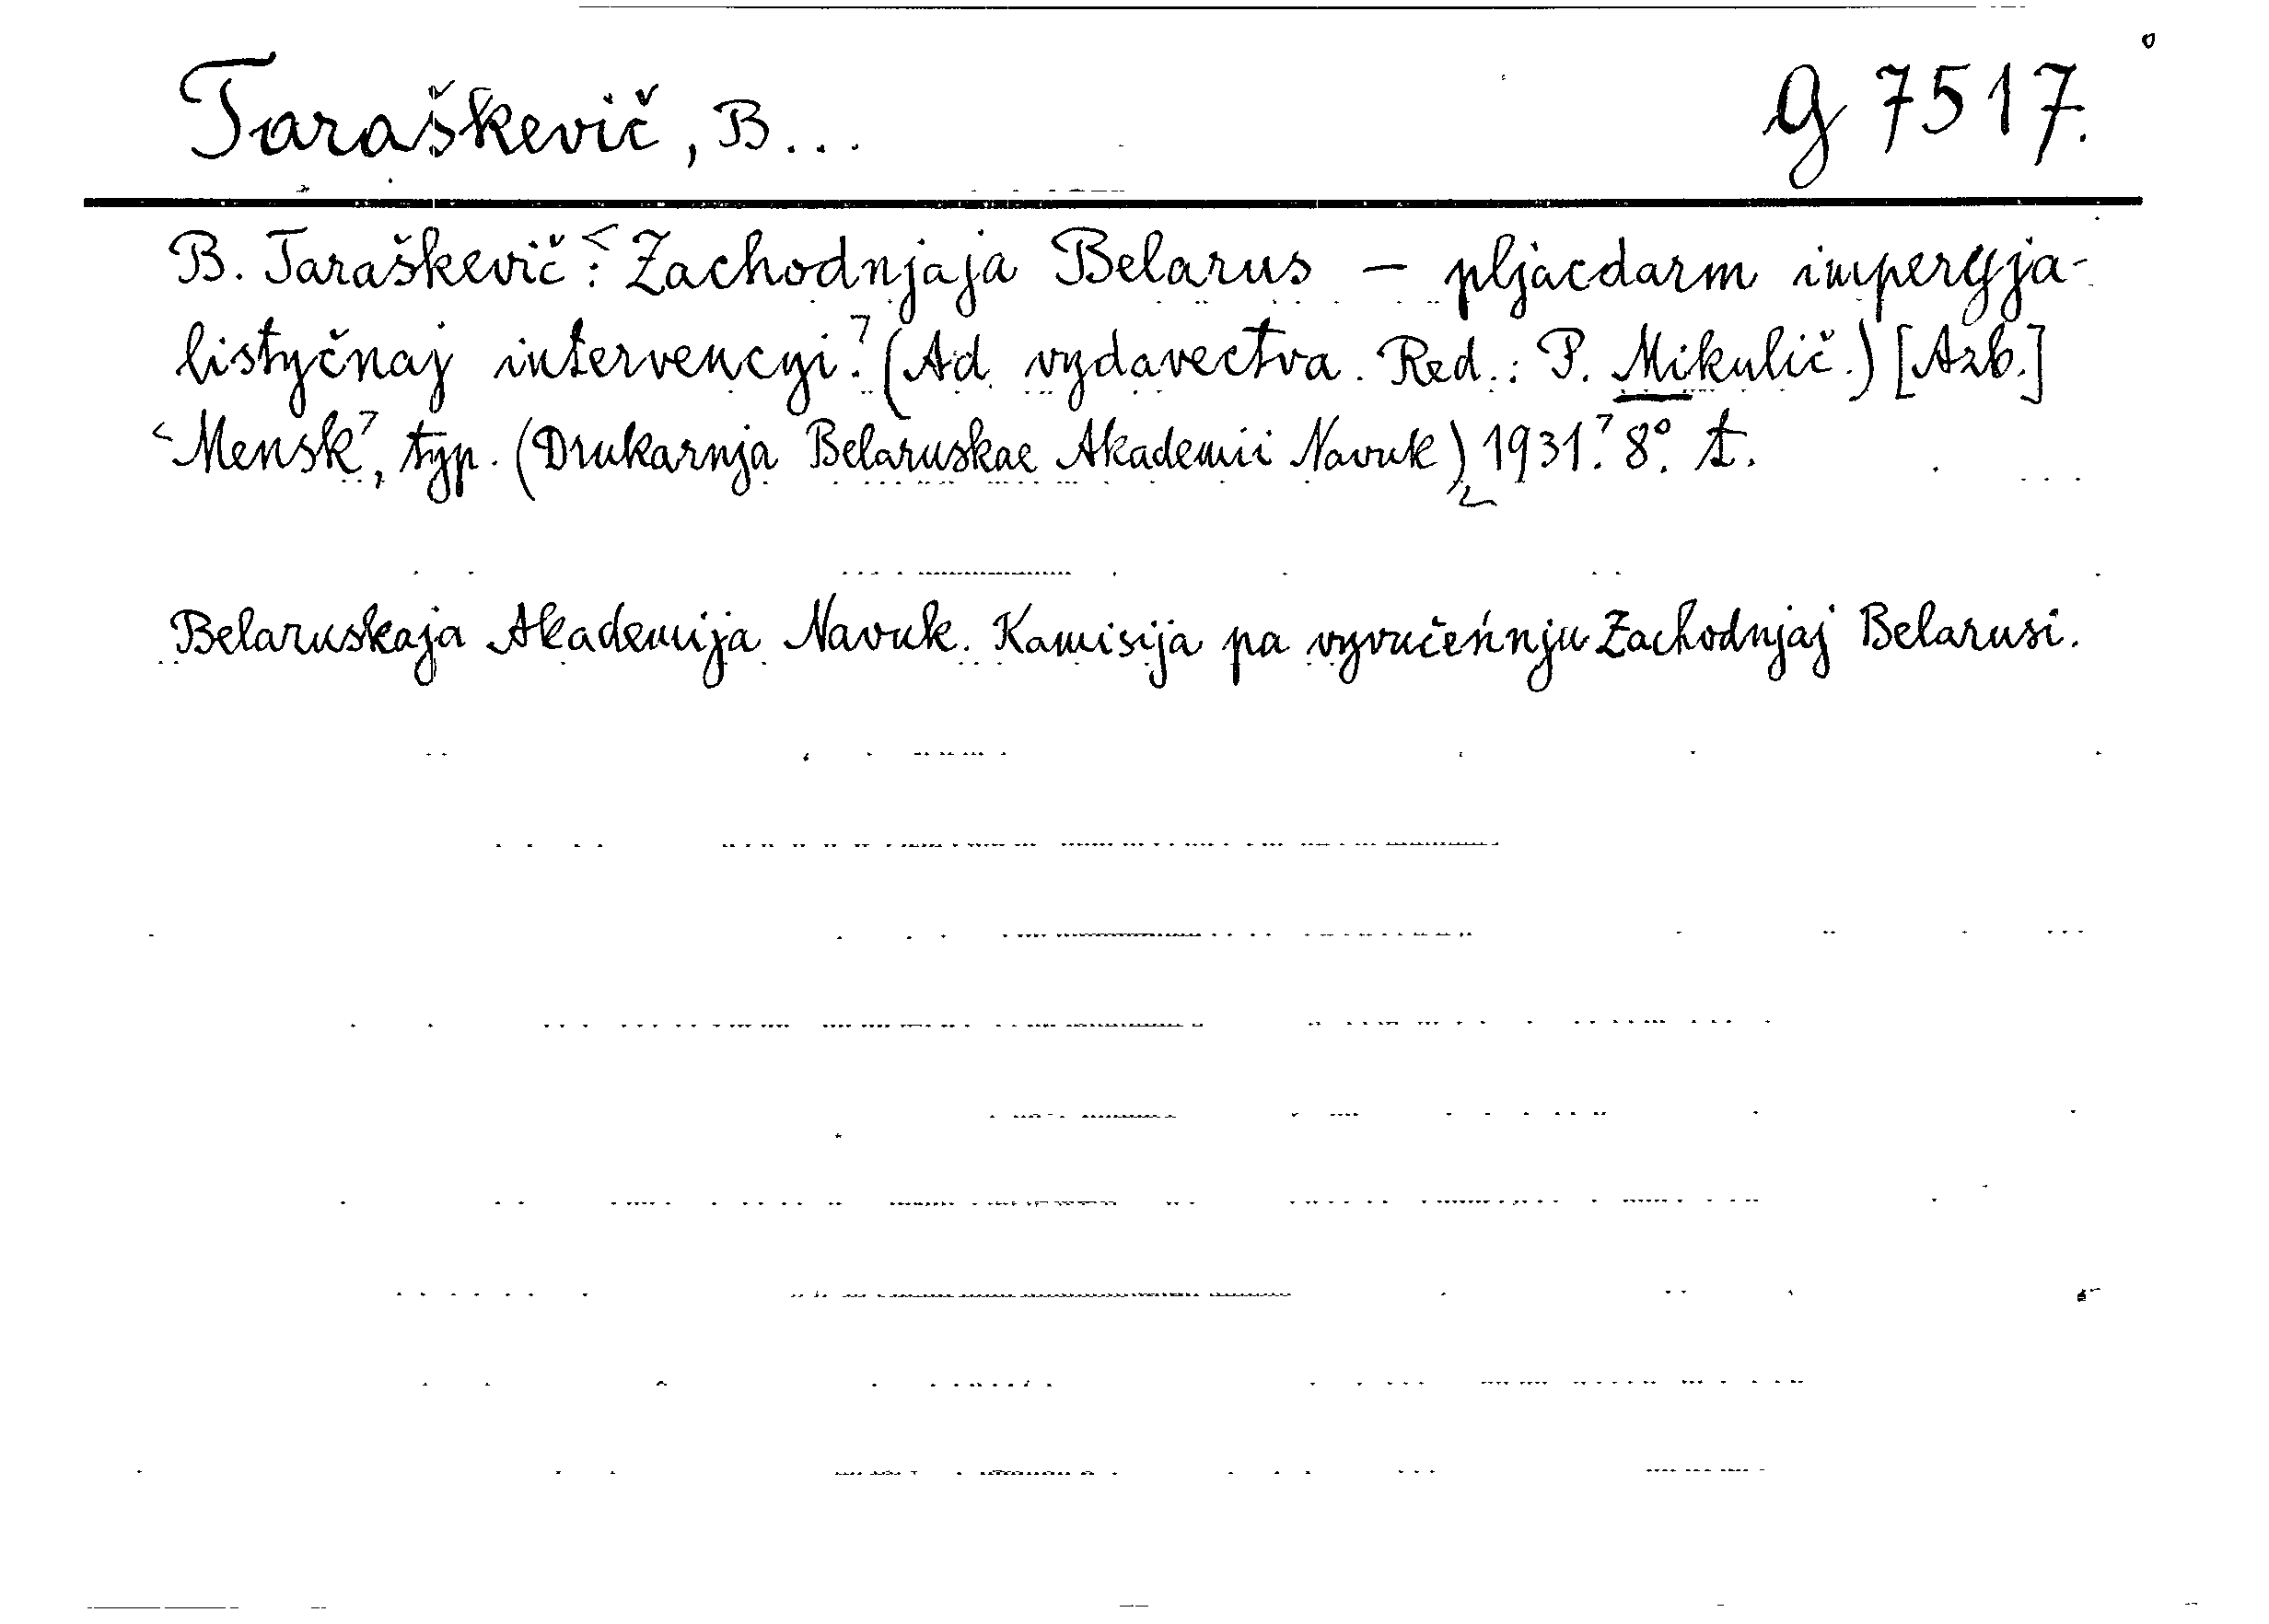 Taraškevič, B... G 7517.
B. Taraškevič: <Zachodnjaja Belarus — pljacdarm imperyja-
listyčnaj intervencyi.> (Ad vydavectva. Red.: P. Mikulič.) [Azb.]
<Mensk>, typ. (Drukarnja Belaruskae Akademii Navuk) <1931.> 8°. t.
Belaruskaja Akademija Navuk. Kamisija pa vyvučeńnju Zachodnjaj Belarusi.